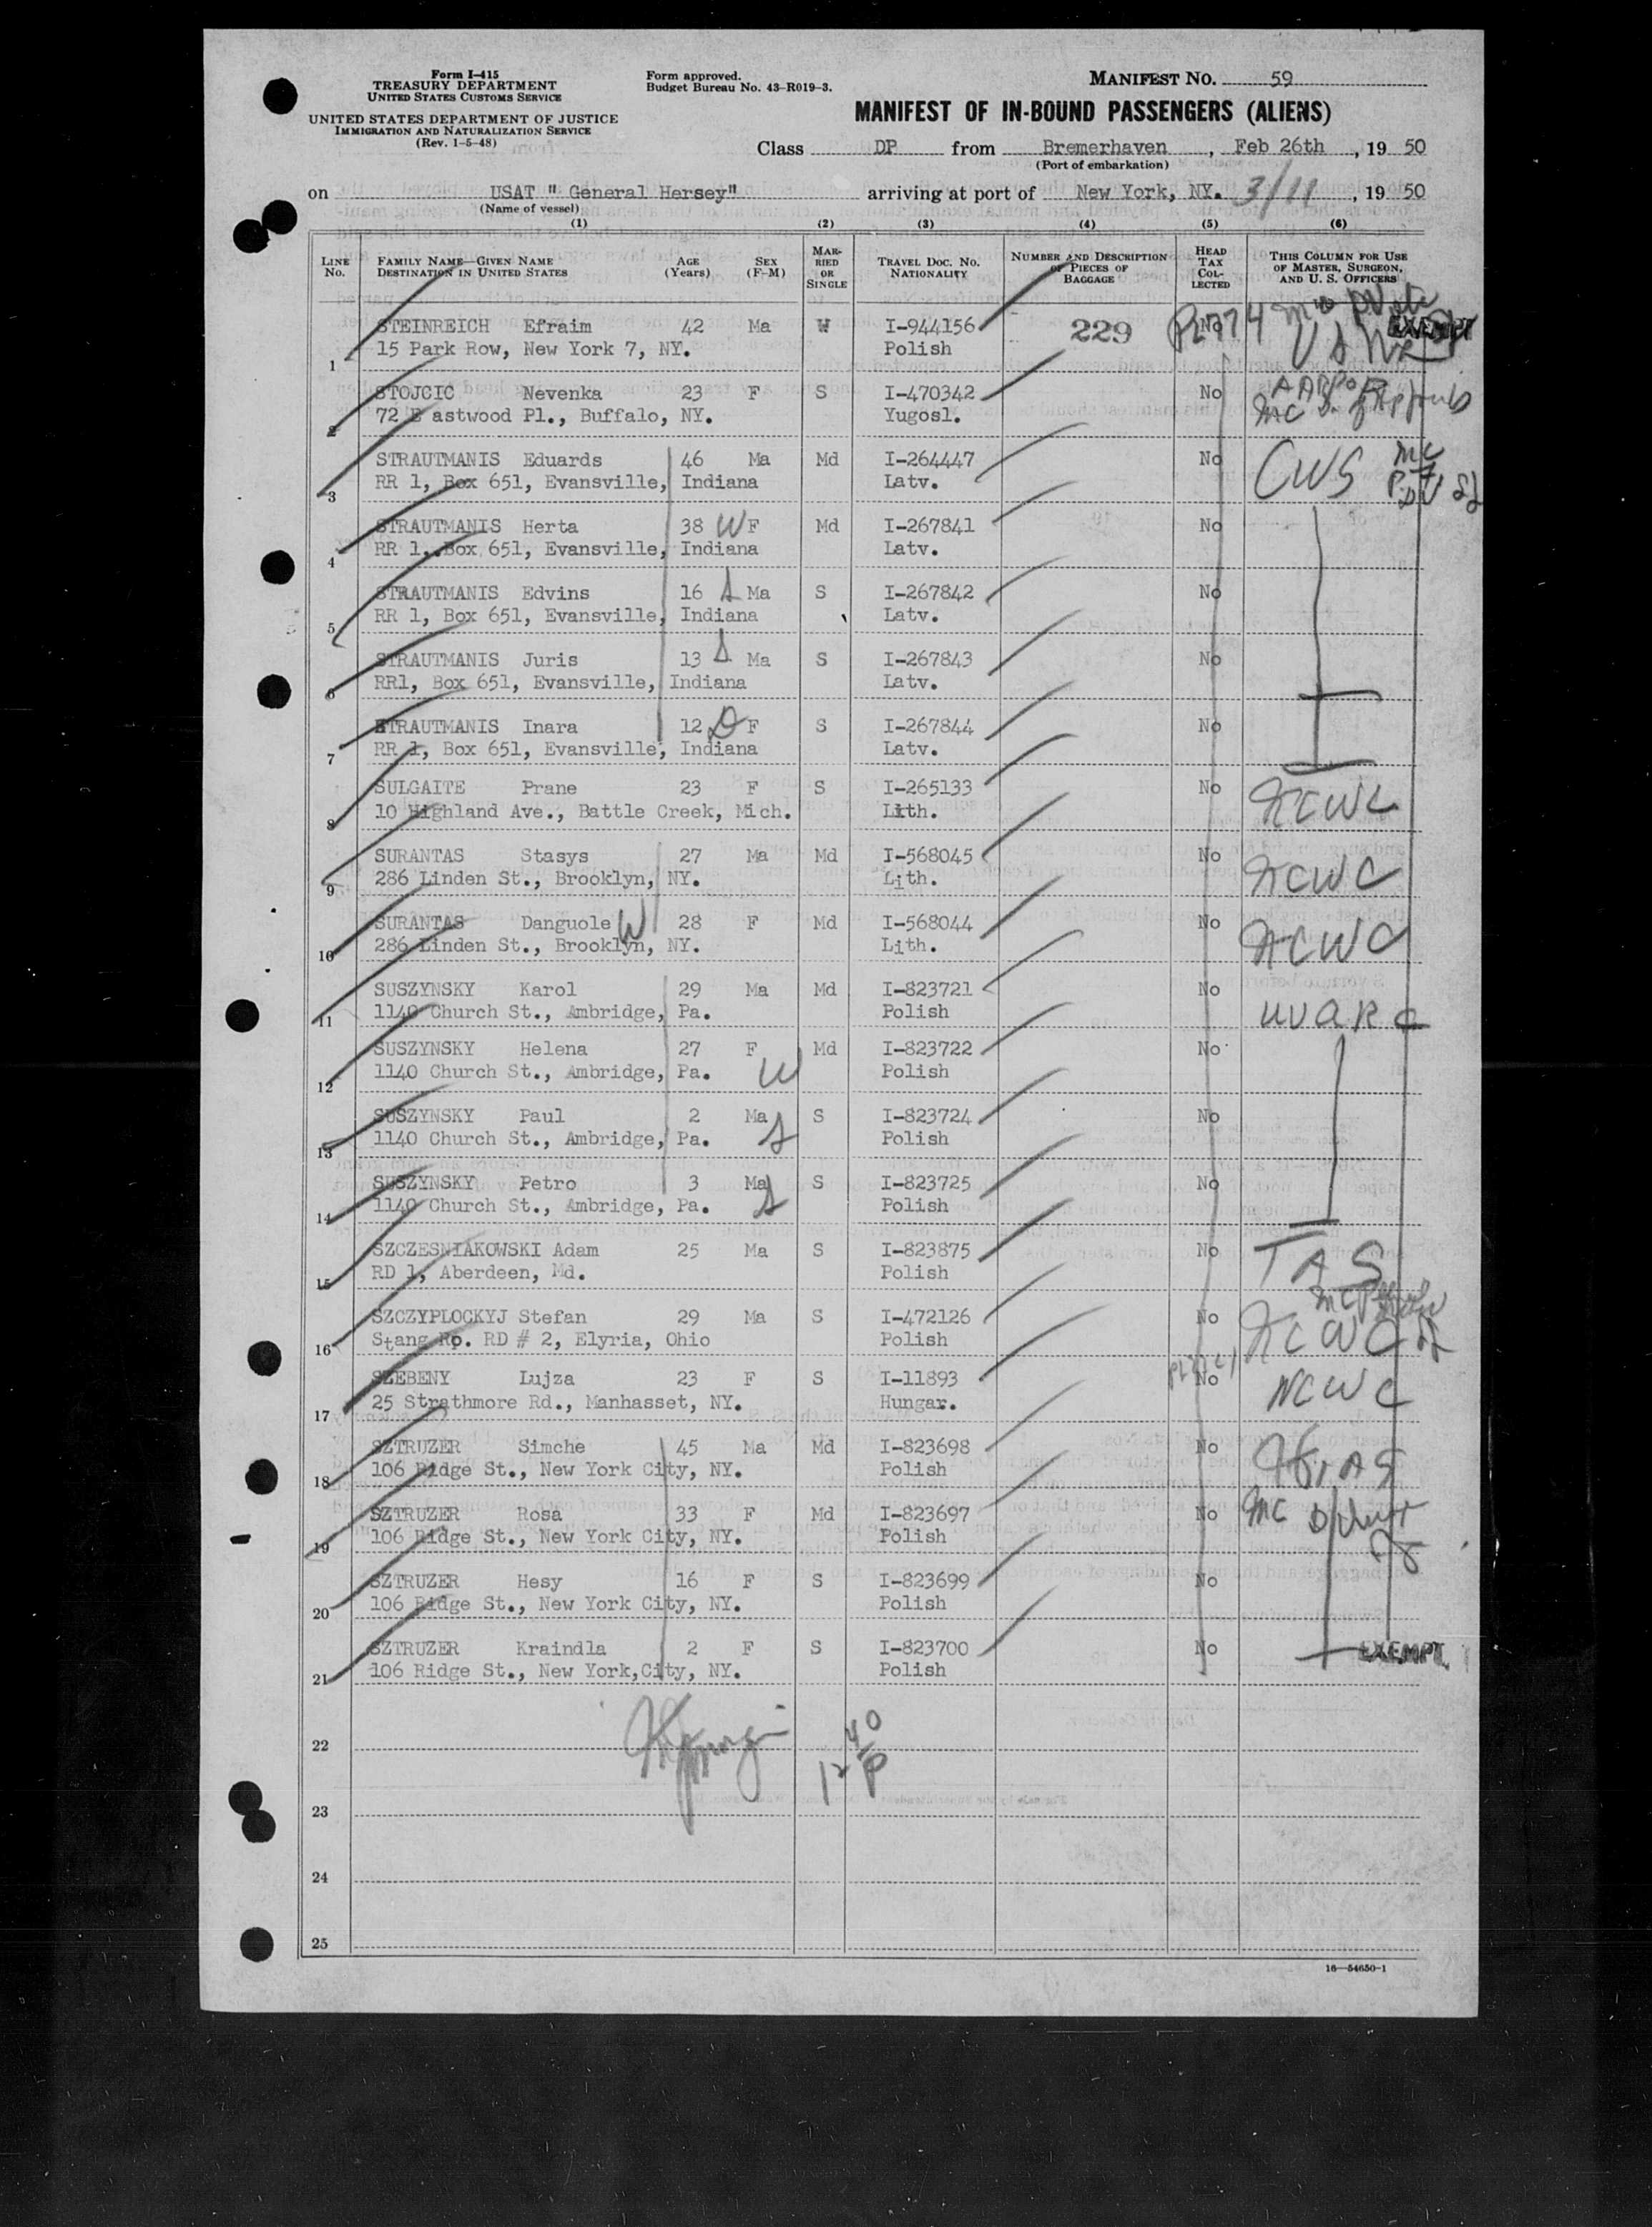 Form I-415
TREASURY DEPARTMENT
UNITED STATES CUSTOMS SERVICE
UNITED STATES DEPARTMENT OF JUSTICE
IMMIGRATION AND NATURALIZATION SERVICE
(Rev. 1-5-48)
Form approved.
Budget Bureau No. 43-R019-3.
MANIFEST No. 59
MANIFEST OF IN-BOUND PASSENGERS (ALIENS)
Class DP from Bremerhaven, Feb 26th, 19 50
(Port of embarkation)
on USAT " General Hersey" arriving at port of New York, NY. 3/11, 19 50
(Name of vessel)
(1) (2) (3) (4) (5) (6)
LINE No. FAMILY NAME—GIVEN NAME DESTINATION IN UNITED STATES AGE (Years) SEX (F-M) MARRIED OR SINGLE TRAVEL DOC. NO. NATIONALITY NUMBER AND DESCRIPTION OF PIECES OF BAGGAGE HEAD TAX COLLECTED THIS COLUMN FOR USE OF MASTER, SURGEON, AND U. S. OFFICERS
STEINREICH Efraim 42 Ma W I-944156 229 No EXEMPT
1 15 Park Row, New York 7, NY. Polish
STOJCIC Nevenka 23 F S I-470342 No
2 72 E astwood Pl., Buffalo, NY. Yugosl.
STRAUTMANIS Eduards 46 Ma Md I-264447 No CWS MC
3 RR 1, Box 651, Evansville, Indiana Latv.
STRAUTMANIS Herta 38 W F Md I-267841 No
4 RR 1, Box 651, Evansville, Indiana Latv.
STRAUTMANIS Edvins 16 S Ma S I-267842 No
5 RR 1, Box 651, Evansville, Indiana Latv.
STRAUTMANIS Juris 13 S Ma S I-267843 No
6 RR1, Box 651, Evansville, Indiana Latv.
STRAUTMANIS Inara 12 D F S I-267844 No
7 RR 1, Box 651, Evansville, Indiana Latv.
SULGAITE Prane 23 F S I-265133 No NCWC
8 10 Highland Ave., Battle Creek, Mich. Lith.
SURANTAS Stasys 27 Ma Md I-568045 No NCWC
9 286 Linden St., Brooklyn, NY. Lith.
SURANTAS Danguole W 28 F Md I-568044 No NCWC
10 286 Linden St., Brooklyn, NY. Lith.
SUSZYNSKY Karol 29 Ma Md I-823721 No
11 1140 Church St., Ambridge, Pa. Polish UUARC
SUSZYNSKY Helena 27 F Md I-823722 No
12 1140 Church St., Ambridge, Pa. W Polish
SUSZYNSKY Paul 2 Ma S I-823724 No
13 1140 Church St., Ambridge, Pa. S Polish
SUSZYNSKY Petro 3 Ma S I-823725 No
14 1140 Church St., Ambridge, Pa. S Polish
SZCZESNIAKOWSKI Adam 25 Ma S I-823875 No TAS
15 RD 1, Aberdeen, Md. Polish
SZCZYPLOCKYJ Stefan 29 Ma S I-472126 No NCWC
16 Stang Rp. RD # 2, Elyria, Ohio Polish
SZEBENY Lujza 23 F S I-11893 No NCWC
17 25 Strathmore Rd., Manhasset, NY. Hungar.
SZTRUZER Simche 45 Ma Md I-823698 No HIAS
18 106 Ridge St., New York City, NY. Polish
SZTRUZER Rosa 33 F Md I-823697 No MC
19 106 Ridge St., New York City, NY. Polish
SZTRUZER Hesy 16 F S I-823699 No
20 106 Ridge St., New York City, NY. Polish
SZTRUZER Kraindla 2 F S I-823700 No EXEMPT
21 106 Ridge St., New York,City, NY. Polish
22
23
24
25
16—54650-1